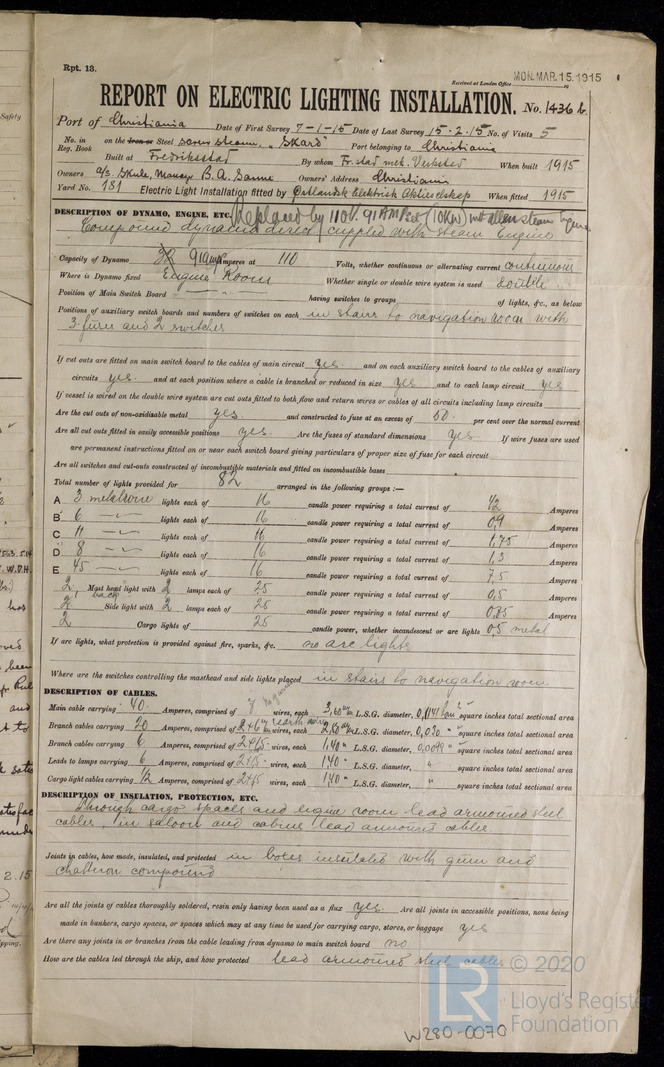 Rpt. 13.
Received at London Office MON. MAR. 15. 1915
REPORT ON ELECTRIC LIGHTING INSTALLATION. No. 1436 b
Port of Christiania Date of First Survey 7-1-15 Date of Last Survey 15.2.15 No. of Visits 5
No. in Reg. Book on the Iron or Steel screw steam. "Skard" Port belonging to Christiania
Built at Fredriksstad By whom Fr.stad mek. Verksted When built 1915
Owners A/s. Skule, Manager B. A. Sanne Owners' Address Christiania
Yard No. 181 Electric Light Installation fitted by Elektrisk Aktieselskap When fitted 1915
DESCRIPTION OF DYNAMO, ENGINE, ETC. Replaced by 110 V. 91 AMPere (10 KW) allen steam
Compound dynamo direct cuppled with steam Engine
Capacity of Dynamo 32 91 amp Amperes at 110 Volts, whether continuous or alternating current continuous
Where is Dynamo fixed Engine Room Whether single or double wire system is used double
Position of Main Switch Board — " — having switches to groups of lights, &c., as below
Positions of auxiliary switch boards and numbers of switches on each in stairs to navigation room with
3 fuses and 2 switches
If cut outs are fitted on main switch board to the cables of main circuit yes. and on each auxiliary switch board to the cables of auxiliary
circuits yes. and at each position where a cable is branched or reduced in size yes and to each lamp circuit yes
If vessel is wired on the double wire system are cut outs fitted to both flow and return wires or cables of all circuits including lamp circuits
Are the cut outs of non-oxidisable metal yes. and constructed to fuse at an excess of 50. per cent over the normal current
Are all cut outs fitted in easily accessible positions yes. Are the fuses of standard dimensions yes If wire fuses are used
are permanent instructions fitted on or near each switch board giving particulars of proper size of fuse for each circuit
Are all switches and cut-outs constructed of incombustible materials and fitted on incombustible bases
Total number of lights provided for 82 arranged in the following groups :—
A 3 metalwire lights each of 16 candle power requiring a total current of Amperes
B 6 — " — lights each of 16 candle power requiring a total current of 0,9 Amperes
C 11 — " — lights each of 16 candle power requiring a total current of 1,75 Amperes
D 8 — " — lights each of 16 candle power requiring a total current of 1,3 Amperes
E 45 — " — lights each of 16 candle power requiring a total current of 7,5 Amperes
2, Mast head light with 2 lamps each of 25 candle power requiring a total current of 0,5 Amperes
2 Side light with 2 lamps each of 25 candle power requiring a total current of 0,85 Amperes
2 Cargo lights of 25 candle power, whether incandescent or arc lights 0,5 metal
If arc lights, what protection is provided against fire, sparks, &c. no arc lights
Where are the switches controlling the masthead and side lights placed in stairs to navigation room
DESCRIPTION OF CABLES.
Main cable carrying 40. Amperes, comprised of 7 wires, each L.S.G. diameter, square inches total sectional area
Branch cables carrying 20 Amperes, comprised of wires, each L.S.G. diameter, 0,030 " square inches total sectional area
Branch cables carrying 6 Amperes, comprised of wires, each 1,40 " L.S.G. diameter, square inches total sectional area
Leads to lamps carrying 6 Amperes, comprised of wires, each 1,40 " L.S.G. diameter, " square inches total sectional area
Cargo light cables carrying 1/2 Amperes, comprised of wires, each 1,40 " L.S.G. diameter, " square inches total sectional area
DESCRIPTION OF INSULATION, PROTECTION, ETC.
Through cargo spaces and engine room lead armoured steel
cables, in saloon and cabins lead armoured cables
Joints in cables, how made, insulated, and protected in boxes insulated with gum and
chatterton compound
Are all the joints of cables thoroughly soldered, resin only having been used as a flux yes. Are all joints in accessible positions, none being
made in bunkers, cargo spaces, or spaces which may at any time be used for carrying cargo, stores, or baggage yes
Are there any joints in or branches from the cable leading from dynamo to main switch board no
How are the cables led through the ship, and how protected lead armoured steel cables
LR © 2020
Lloyd's Register
Foundation
W280-0070